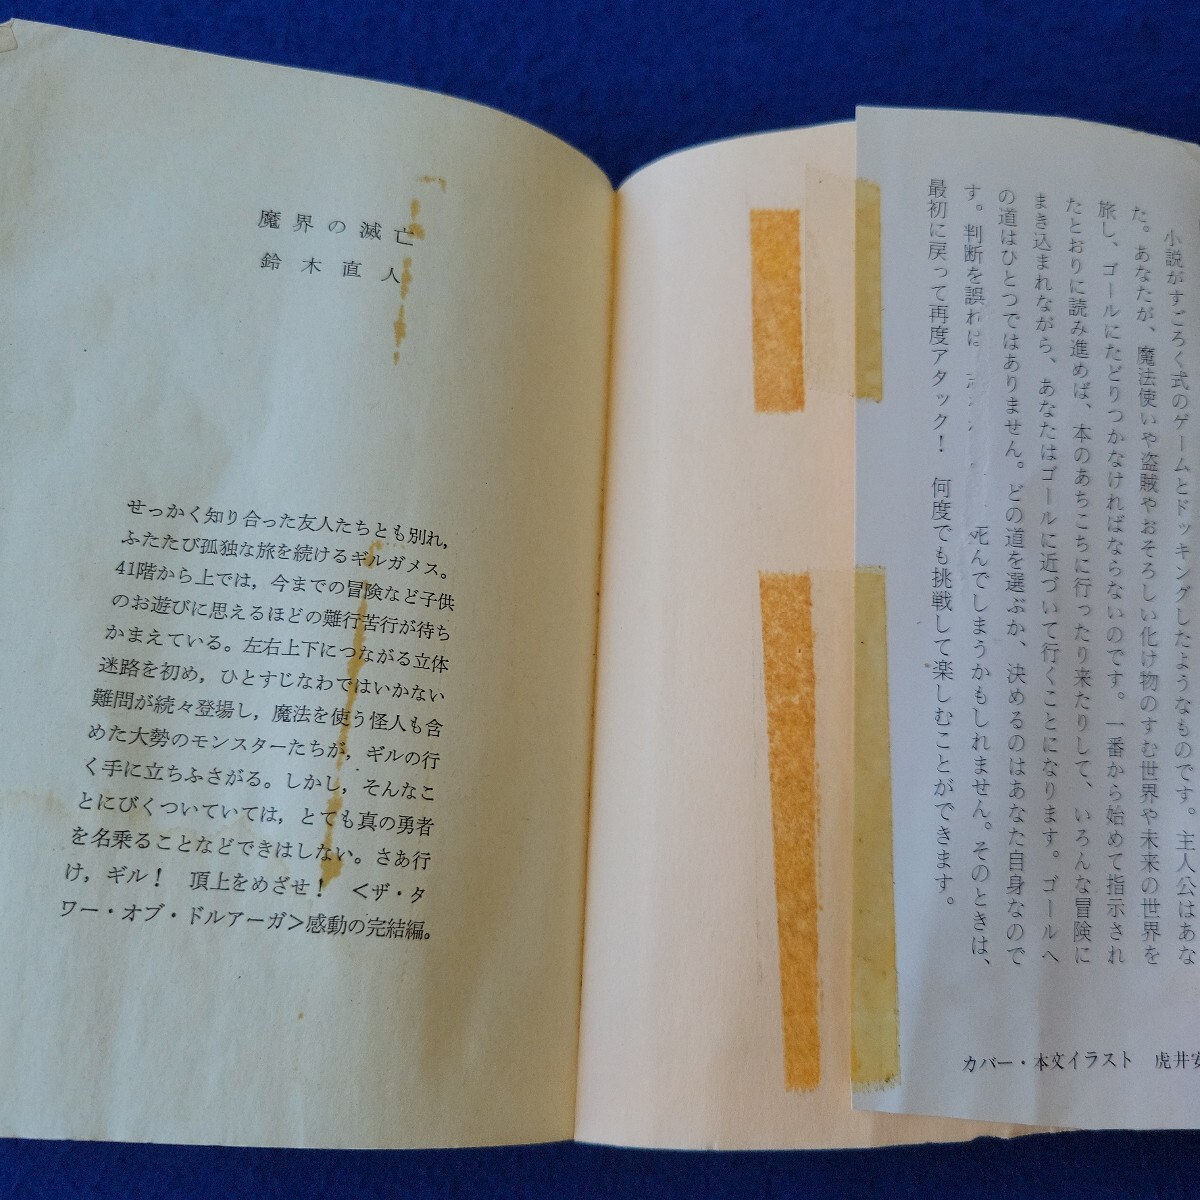 魔界の滅亡
鈴木直人
せっかく知り合った友人たちとも別れ，
ふたたび孤独な旅を続けるギルガメス。
41階から上では，今までの冒険など子供
のお遊びに思えるほどの難行苦行が待ち
かまえている。左右上下につながる立体
迷路を初め，ひとすじなわではいかない
難問が続々登場し，魔法を使う怪人も含
めた大勢のモンスターたちが，ギルの行
く手に立ちふさがる。しかし，そんなこ
とにびくついていては，とても真の勇者
を名乗ることなどできはしない。さあ行
け，ギル！　頂上をめざせ！　＜ザ・タ
ワー・オブ・ドルアーガ＞感動の完結編。
小説がすごろく式のゲームとドッキングしたようなものです。主人公はあな
た。あなたが、魔法使いや盗賊やおそろしい化け物のすむ世界や未来の世界を
旅し、ゴールにたどりつかなければならないのです。一番から始めて指示され
たとおりに読み進めば、本のあちこちに行ったり来たりして、いろんな冒険に
まき込まれながら、あなたはゴールに近づいて行くことになります。ゴールへ
の道はひとつではありません。どの道を選ぶか、決めるのはあなた自身なので
す。判断を誤れば 死んでしまうかもしれません。そのときは、
最初に戻って再度アタック！　何度でも挑戦して楽しむことができます。
カバー・本文イラスト　虎井安